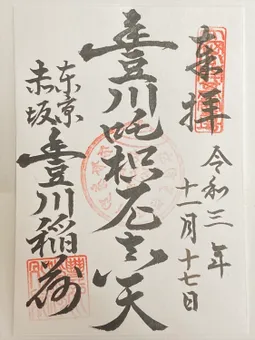 奉拝
令和三年
十一月十七日
豊川吒枳尼真天
东京
赤坂
豊川稲荷